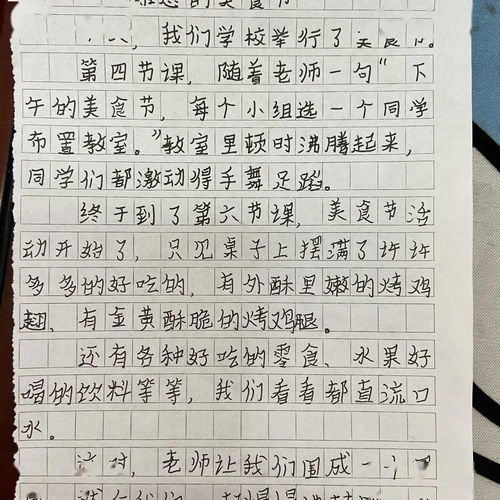 的美食节
，我们学校举行了美食节。
第四节课，随着老师一句“下
午的美食节，每个小组选一个同学
布置教室。”教室里顿时沸腾起来，
同学们都激动得手舞足蹈。
终于到了第六节课，美食节活
动开始了，只见桌子上摆满了许许
多多的好吃的，有外酥里嫩的烤鸡
翅、有金黄酥脆的烤鸡腿。
还有各种好吃的零食、水果好
喝的饮料等等，我们看着都直流口
水。
这时，老师让我们围成一个